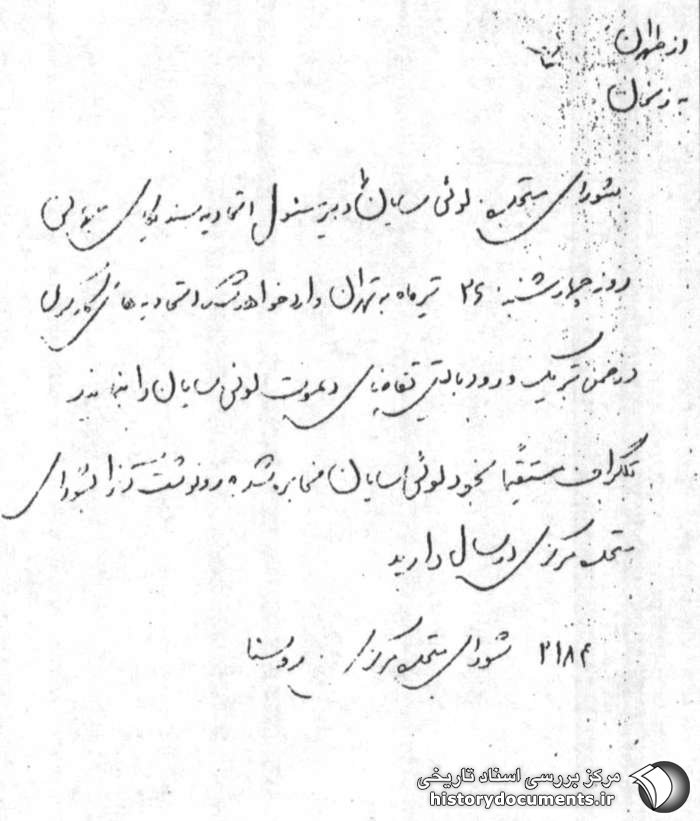 از طهران
به زنجان
بشورای متحده لوئی سایان دبیر مسئول اتحادیه سندیکاهای جهانی
روز چهارشنبه ۲۶ تیرماه به تهران وارد خواهد شد اتحادیه های کارگری
در ضمن تبریک ورود بایستی تقاضای دعوت لوئی سایان را بنمایند
تلگراف مستقیما بخود لوئی سایان مخابره شده رونوشت آنرا بشورای
متحده مرکزی ارسال دارید
۲۱۸۴ شورای متحده مرکزی روستا
مرکز بررسی اسناد تاریخی
historydocuments.ir